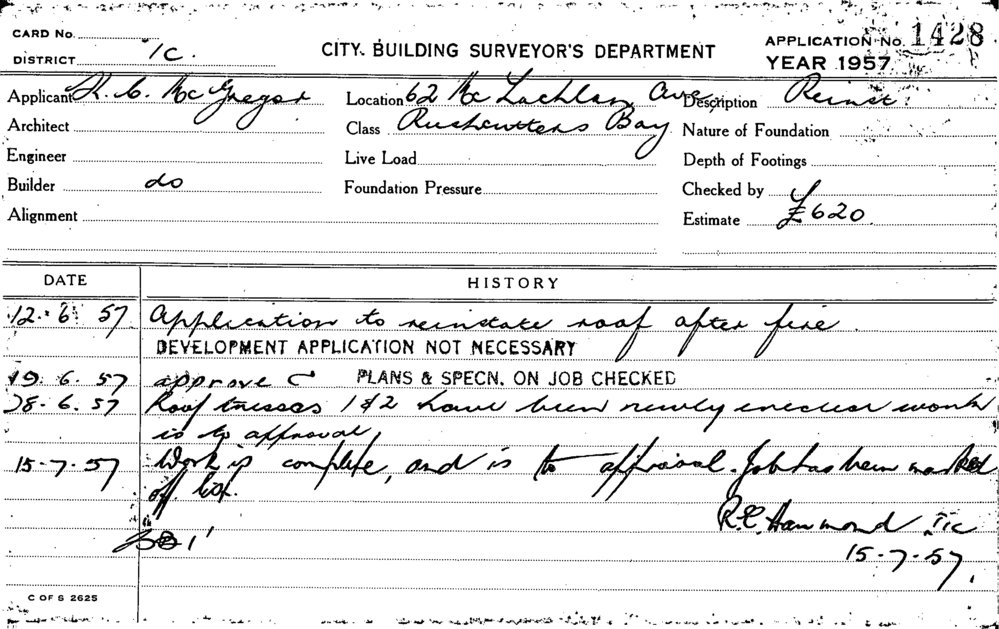 CARD No.
DISTRICT 1C.
CITY BUILDING SURVEYOR'S DEPARTMENT
APPLICATION No. 1428
YEAR 1957
Applicant R. C. McGregor Location 62 McLachlan Ave Description Reinst
Architect Class Rushcutters Bay Nature of Foundation
Engineer Live Load Depth of Footings
Builder do Foundation Pressure Checked by
Alignment Estimate £620.
DATE HISTORY
12. 6 57 Application to reinstate roof after fire.
DEVELOPMENT APPLICATION NOT NECESSARY
19. 6. 57 approve C PLANS & SPECN. ON JOB CHECKED
28. 6. 57 Roof trusses 1 & 2 have been newly erected work
is to approval
15-7-57 Work is complete, and is to approval. Job has been marked
off
R.C. Hammond
15-7-57.
C OF S 2625